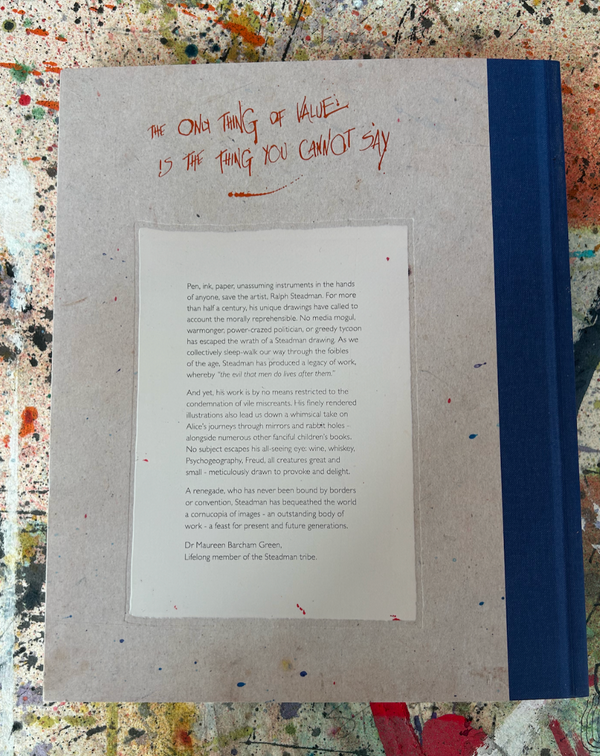 THE ONLY THING OF VALUE:
IS THE THING YOU CANNOT SAY
Pen, ink, paper, unassuming instruments in the hands
of anyone, save the artist, Ralph Steadman. For more
than half a century, his unique drawings have called to
account the morally reprehensible. No media mogul,
warmonger, power-crazed politician, or greedy tycoon
has escaped the wrath of a Steadman drawing. As we
collectively sleep-walk our way through the foibles
of the age, Steadman has produced a legacy of work,
whereby "the evil that men do lives after them."
And yet, his work is by no means restricted to the
condemnation of vile miscreants. His finely rendered
illustrations also lead us down a whimsical take on
Alice's journeys through mirrors and rabbit holes -
alongside numerous other fanciful children's books.
No subject escapes his all-seeing eye: wine, whiskey,
Psychogeography, Freud, all creatures great and
small - meticulously drawn to provoke and delight.
A renegade, who has never been bound by borders
or convention, Steadman has bequeathed the world
a cornucopia of images - an outstanding body of
work - a feast for present and future generations.
Dr Maureen Barcham Green,
Lifelong member of the Steadman tribe.